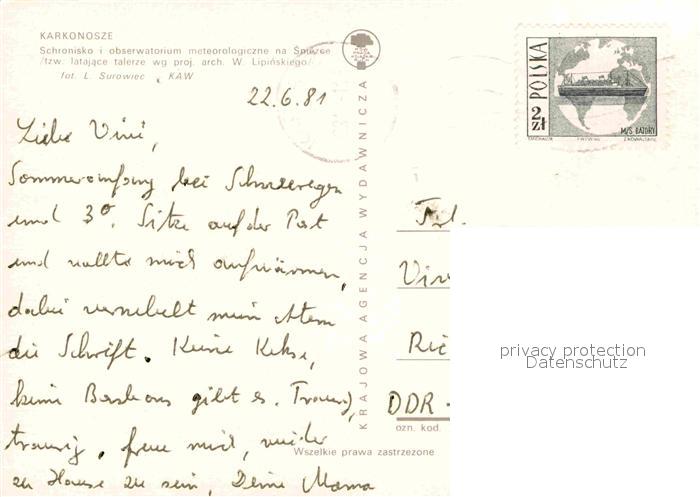 KARKONOSZE
Schronisko i obserwatorium meteorologiczne na Śnieżce
/tzw. latające talerze wg proj. arch. W. Lipińskiego/
fot. L. Surowiec KAW
22.6.81
Liebe Vivi,
Sommeranfang bei Schneeregen
und 3°. Sitze auf der Post
und wollte mich aufwärmen,
dabei vernebelt mein Atem
die Schrift. Keine Kekse,
keine Bonbons gibt es. Traurig,
traurig. freue mich, wieder
zu Hause zu sein, Deine Mama
KRAJOWA AGENCJA WYDAWNICZA
POLSKA
2 zł
M/S BATORY
Frl.
DDR -
ozn. kod.
Wszelkie prawa zastrzeżone
privacy protection
Datenschutz